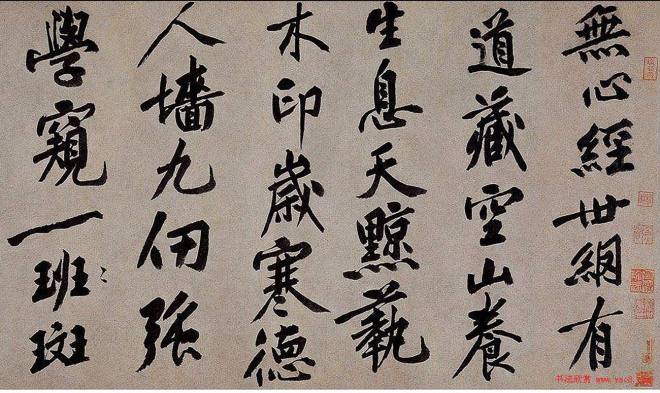 無心經世網有
道藏空山養
生息天黥蓺
木印歲寒德
人墻九仞強
學窺一班斑
书法欣赏 www.yac8.